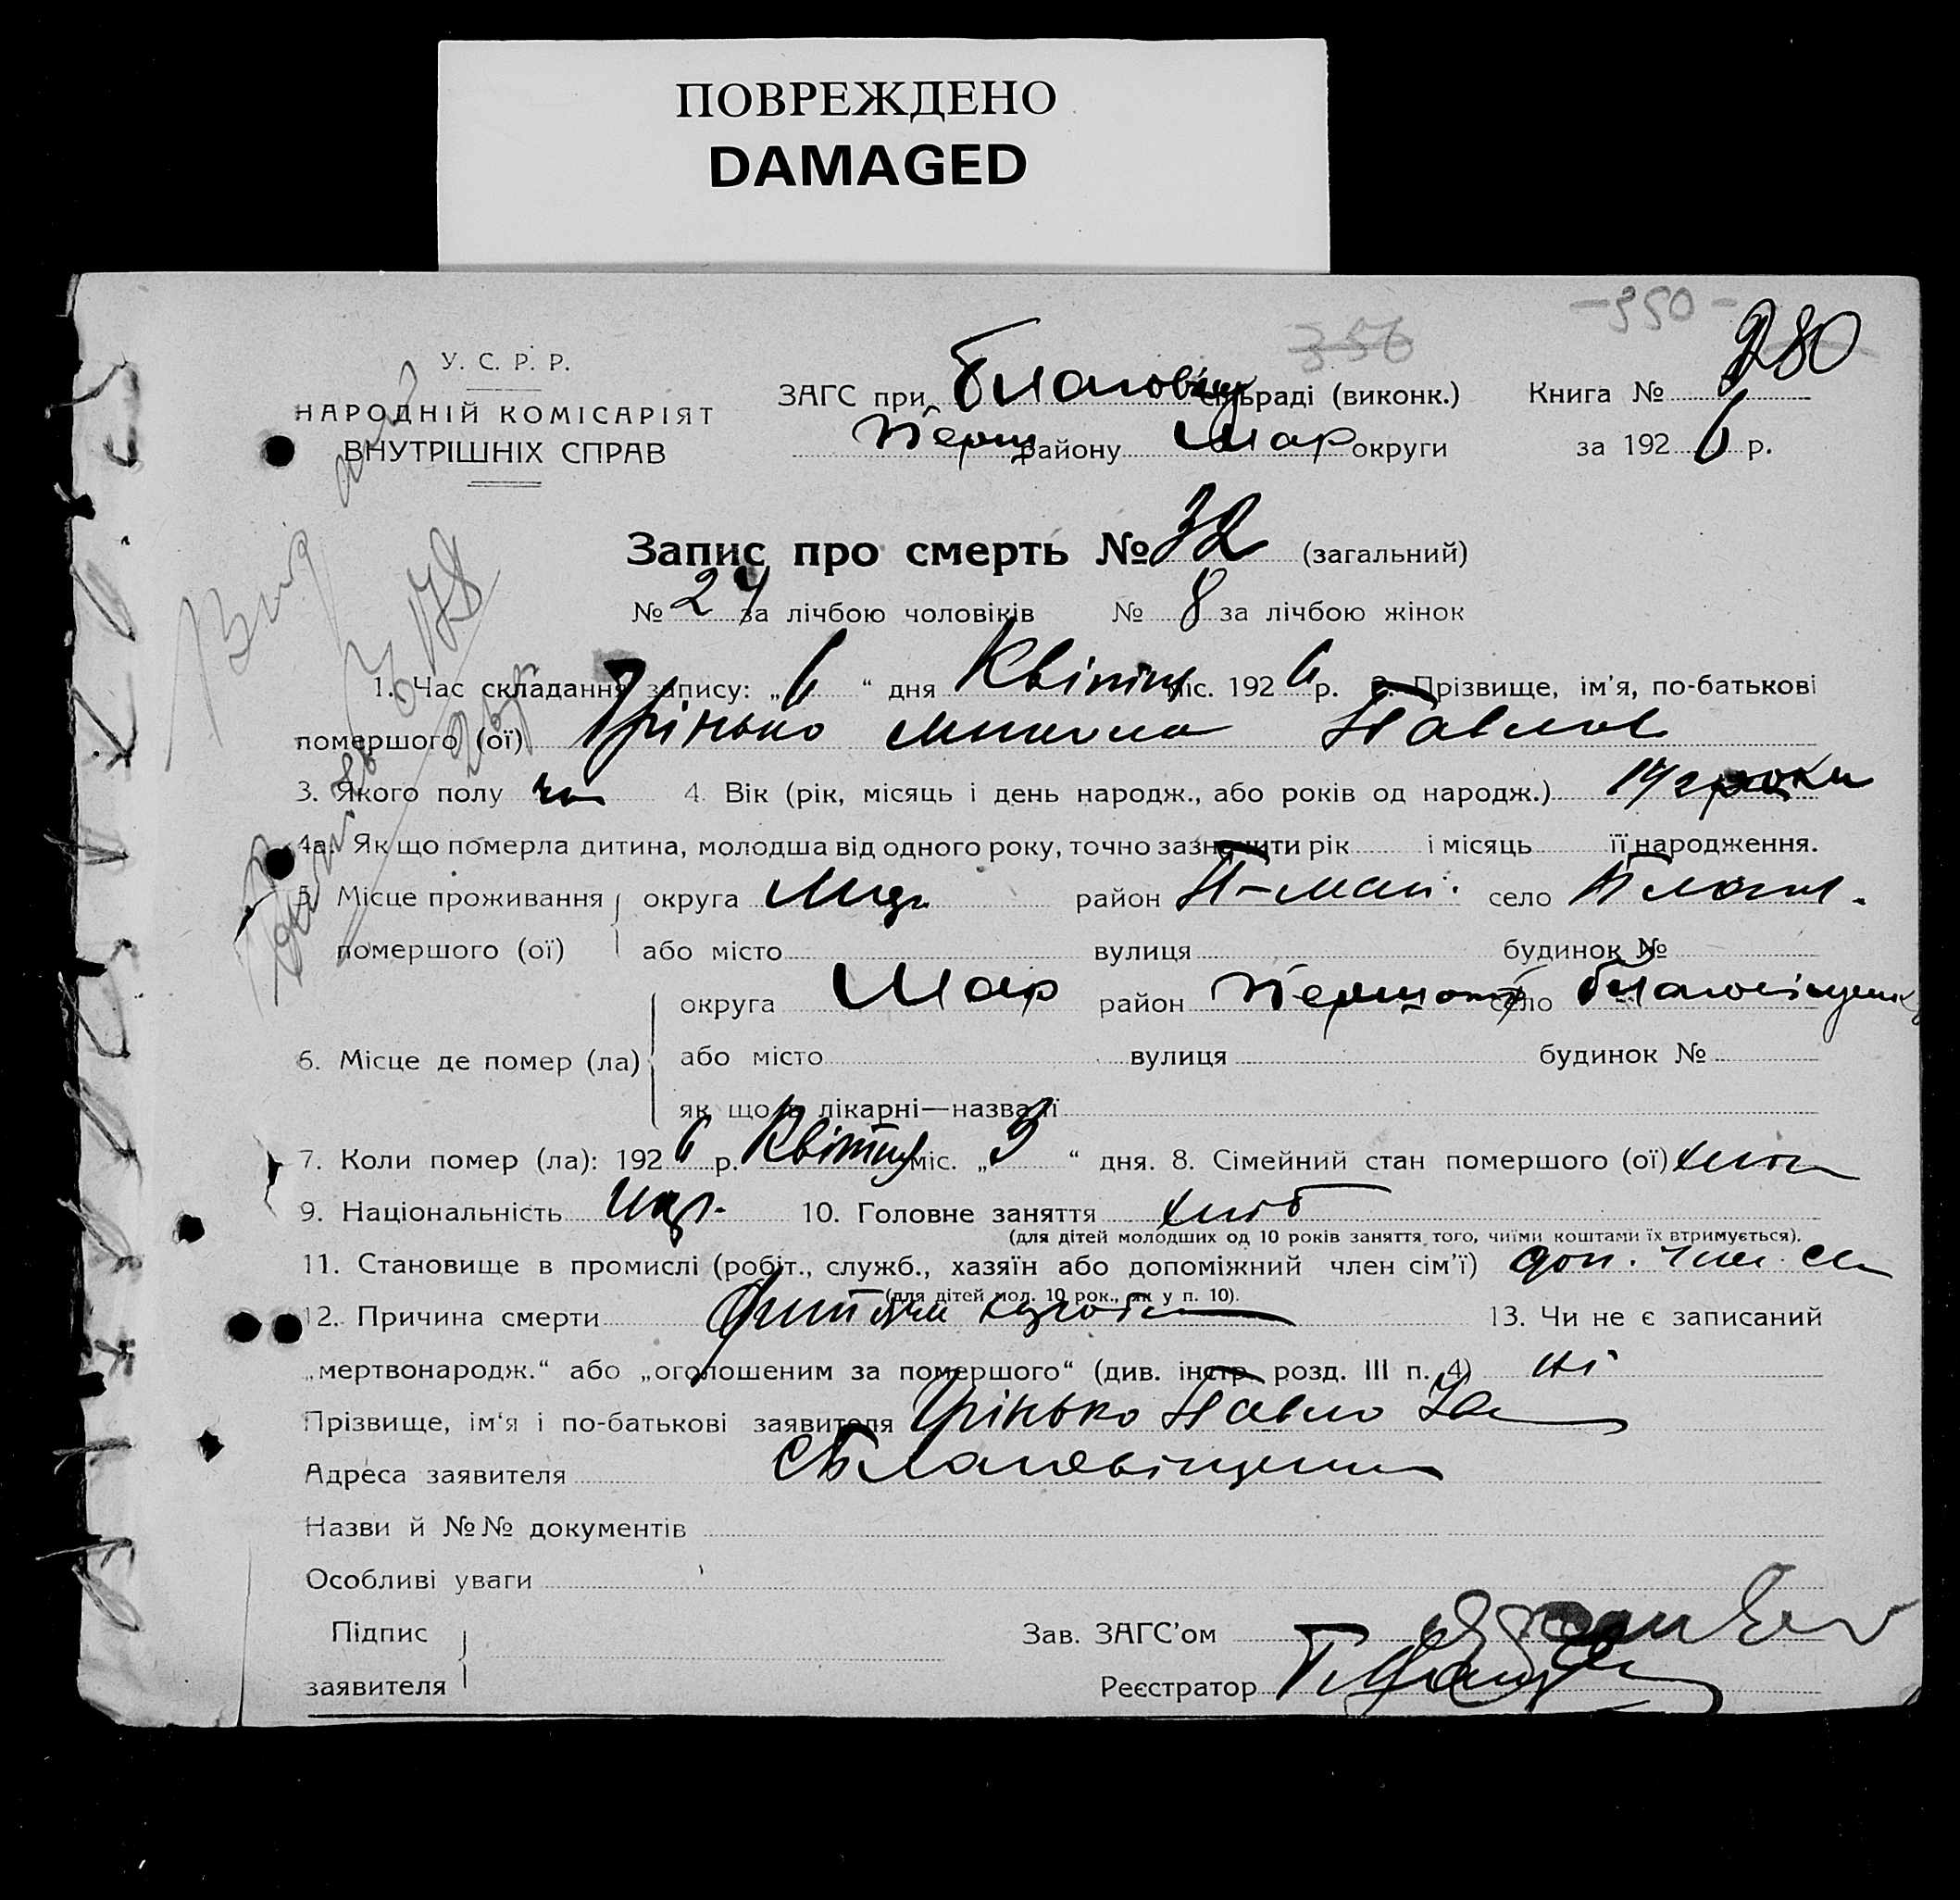 ПОВРЕЖДЕНО
DAMAGED
-350-
356
280
У. С. Р. Р.
НАРОДНІЙ КОМІСАРІЯТ
ВНУТРІШНІХ СПРАВ
ЗАГС при Благовіщ сільраді (виконк.) Книга №
Перш району Мар округи за 1926 р.
Запис про смерть № 32 (загальний)
№ 24 за лічбою чоловіків № 8 за лічбою жінок
1. Час складання запису: „6“ дня Квітня міс. 1926 р. 2. Прізвище, ім'я, по-батькові
помершого (ої) Грінько Микола Павлов
3. Якого полу чол 4. Вік (рік, місяць і день народж., або років од народж.) роки
4а. Як що померла дитина, молодша від одного року, точно зазначити рік і місяць її народження.
5. Місце проживання помершого (ої) округа район село
або місто вулиця будинок №
6. Місце де помер (ла) округа Мар район Першот село Благовіщенка
або місто вулиця будинок №
як що в лікарні—назва її
7. Коли помер (ла): 1926 р. Квітня міс. „3“ дня. 8. Сімейний стан помершого (ої)
9. Національність укр. 10. Головне заняття хліб
(для дітей молодших од 10 років заняття того, чиїми коштами їх втримується).
11. Становище в промислі (робіт., служб., хазяїн або допоміжний член сім'ї) доп. член см
(для дітей мол. 10 рок., як у п. 10).
12. Причина смерти 13. Чи не є записаний
„мертвонародж.“ або „оголошеним за помершого“ (див. інстр. розд. III п. 4) ні
Прізвище, ім'я і по-батькові заявителя Грінько Павло
Адреса заявителя с Благовіщенка
Назви й №№ документів
Особливі уваги
Підпис заявителя
Зав. ЗАГС'ом
Реєстратор